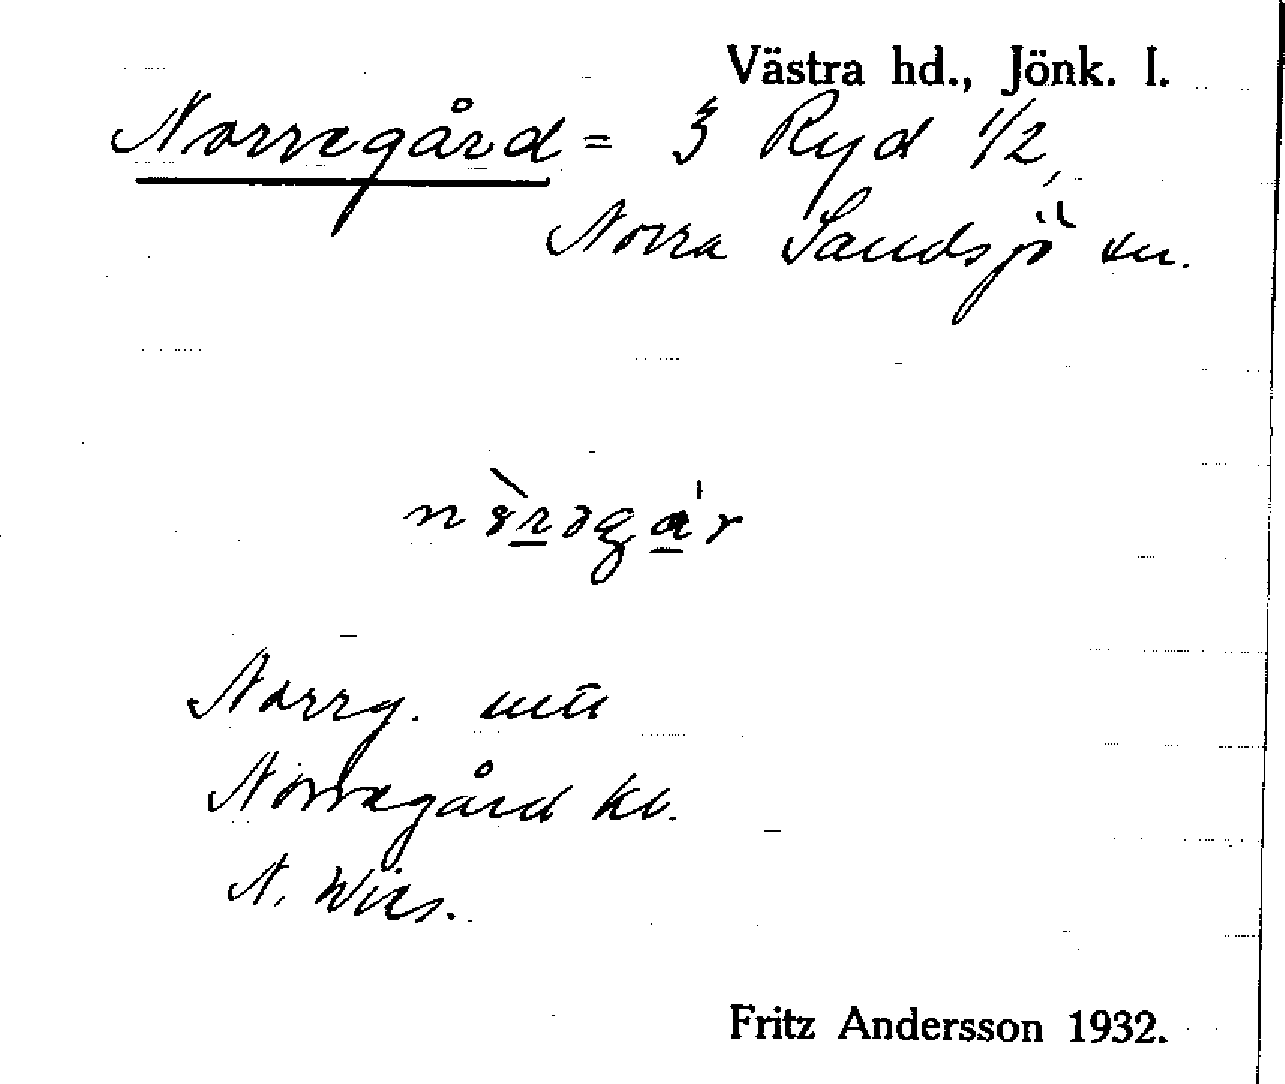 Västra hd., Jönk. l.
Norregård = 3 Ryd 1/2,
Norra Sandsjö sn.
Norrg.
Norregård kb.
Fritz Andersson 1932.